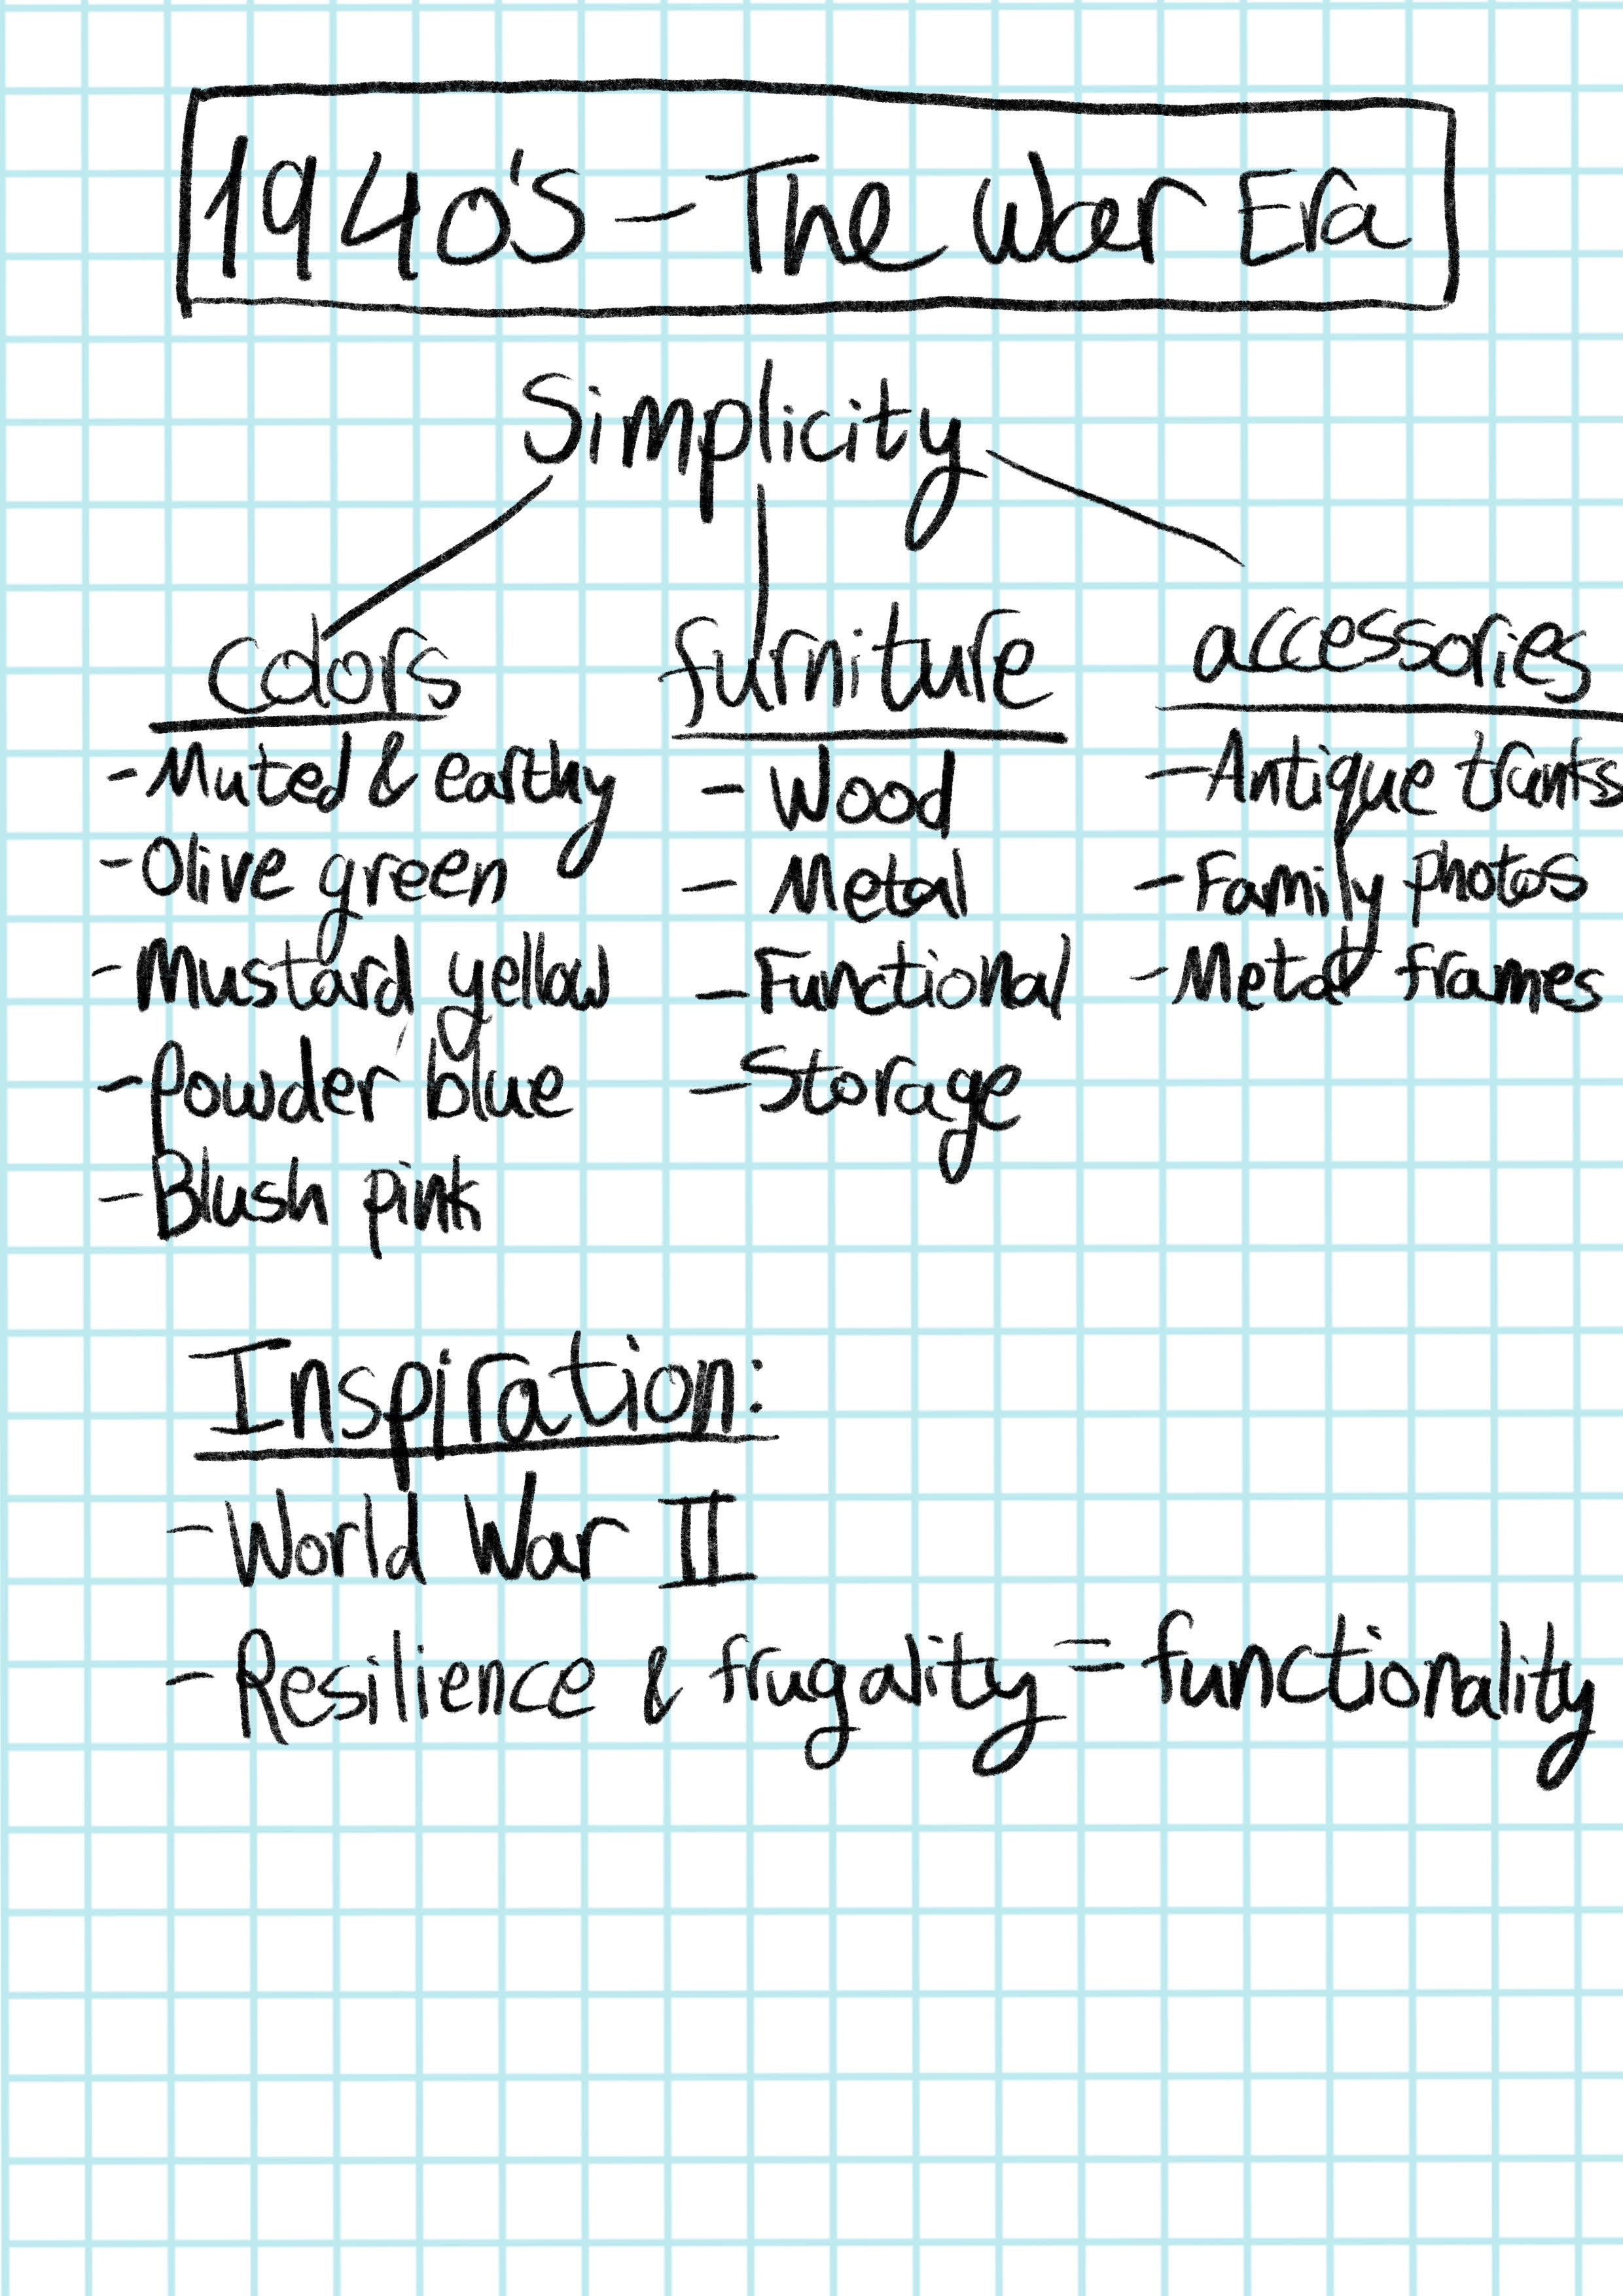 1940's - The War Era
Simplicity
colors
- Muted & earthy
- Olive green
- Mustard yellow
- Powder blue
- Blush pink
furniture
- Wood
- Metal
- Functional
- Storage
accessories
- Antique trunks
- Family photos
- Metal frames
Inspiration:
- World War II
- Resilience & frugality = functionality